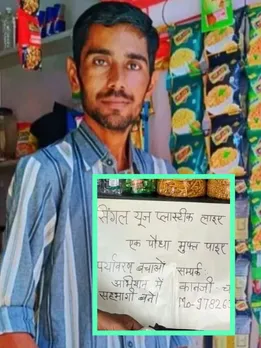 सिंगल यूज प्लास्टीक लाइर
एक पौधा मुफ्त पाइर
पर्यावरण बचाओं सम्पर्क
अभियान में कानजी
सहभागी बने। Mo-97826